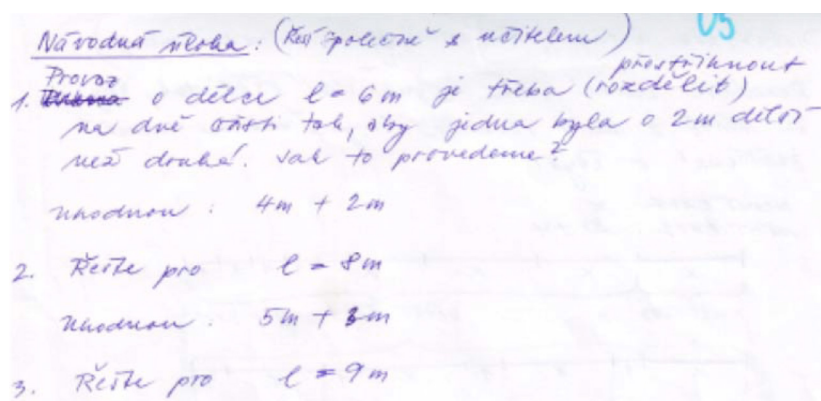 03
Návodná úloha: (Řeší společně s učitelem)
přestřihnout
Provaz
1. o délce l = 6m je třeba (rozdělit)
na dvě části tak, aby jedna byla o 2m delší
než druhá. Jak to provedeme?
Uhodnou: 4m + 2m
2. Řešte pro l = 8m
Uhodnou: 5m + 3m
3. Řešte pro l = 9m